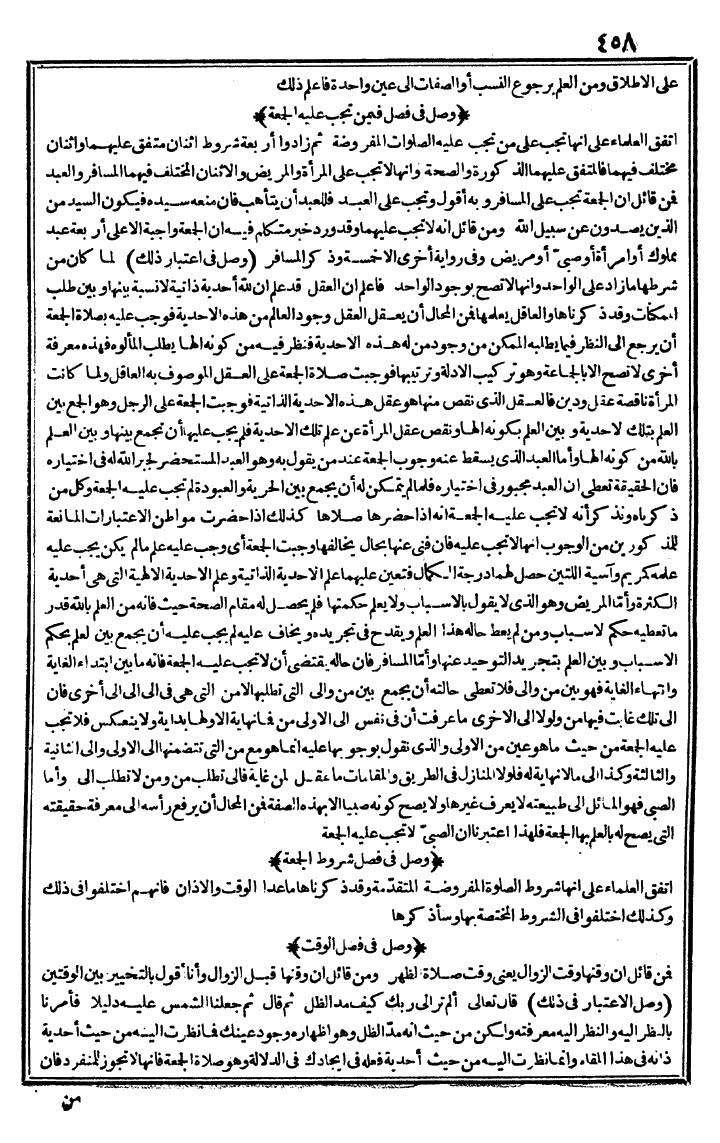 ٤٥٨
على الاطلاق ومن العلم برجوع النسب أو الصفات الى عين واحدة فاعلم ذلك
﴿وصل فى فصل فيمن تجب عليه الجمعة﴾
اتفق العلماء على انها تجب على من تجب عليه الصلوات المفروضة ثم زادوا أربعة شروط اثنان متفق عليهما واثنان
مختلف فيهما فالمتفق عليهما الذكورة والصحة وانها لا تجب على المرأة والمريض والاثنان المختلف فيهما المسافر والعبد
فمن قائل ان الجمعة تجب على المسافر وبه أقول وتجب على العبد فللعبد أن يتأهب فان منعه سيده فيكون السيد من
الذين يصدون عن سبيل الله ومن قائل انه لا تجب عليهما وقد ورد خبر متكلم فيه ان الجمعة واجبة الاعلى أربعة عبد
مملوك أو امرأة أو صبىّ أو مريض وفى رواية أخرى الاخمسة وذكر المسافر (وصل فى اعتبار ذلك) لما كان من
شرطها مازاد على الواحد وانها لا تصح بوجود الواحد فاعلم ان العقل قد علم ان لله أحدية ذاتية لا نسبة بينها وبين طلب
الممكنات وقد ذكرناها والعاقل يعلمها فمن المحال أن يعقل العقل وجود العالم من هذه الاحدية فوجب عليه بصلاة الجمعة
أن يرجع الى النظر فيما يطلبه الممكن من وجود من له هذه الاحدية فنظر فيه من كونه الها يطلب المألوه فهذه معرفة
أخرى لا تصح الا بالجماعة وهو تركيب الادلة وترتيبها فوجبت صلاة الجمعة على العقل الموصوف به العاقل ولما كانت
المرأة ناقصة عقل ودين فالعقل الذى نقص منها هو عقل هذه الاحدية الذاتية فوجبت الجمعة على الرجل وهو الجمع بين
العلم بتلك لاحدية وبين العلم بكونه الها ونقص عقل المرأة عن علم تلك الاحدية فلم يجب عليها أن تجمع بينها وبين العلم
بالله من كونه الها وأما العبد الذى يسقط عنه وجوب الجمعة عند من يقول به وهو العبد المستحضر لجبر الله له فى اختياره
فان الحقيقة تعطى ان العبد مجبور فى اختياره فلما لم يتمكن له أن يجمع بين الحرية والعبودة لم تجب عليه الجمعة وكل من
ذكرناه ونذكر أنه لا تجب عليه الجمعة انه اذا حضرها صلاها كذلك اذا حضرت مواطن الاعتبارات المانعة
للمذكورين من الوجوب انها لا تجب عليه فان فنى عنها بحال يخالفها وجبت الجمعة أى وجب عليه علم مالم يكن يجب عليه
علمه كمريم وآسية اللتين حصل لهما درجة الكمال فتعين عليهما علم الاحدية الذاتية وعلم الاحدية الالهية التى هى أحدية
الكثرة وأما المريض وهو الذى لا يقول بالاسباب ولا يعلم حكمتها فلم يحصل له مقام الصحة حيث فاته من العلم بالله قدر
ما تعطيه حكم لاسباب ومن لم يعط حاله هذا العلم ويقدح فى تجريده ويخاف عليه لم يجب عليه أن يجمع بين لعلم بحكم
الاسباب وبين العلم بتجريد التوحيد عنها وأما المسافر فان حاله يقتضى أن لا تجب عليه الجمعة فانه ما بين ابتداء الغاية
وانتهاء الغاية فهو بين من والى فلا تعطى حالته أن يجمع بين من والى التى تطلبها الامن التى هى فى الى الى الى أخرى فان
الى تلك غابت فيها من ولولا الى الاخرى ما عرفت أن فى نفس الى الاولى من فما نهاية الا ولها بداية ولا ينعكس فلا تجب
عليه الجمعة من حيث ما هو عين من الاولى والذى نقول بوجوبها عليه انما هو مع من التى تتضمنها الى الاولى والى الثانية
والثالثة وكذا الى مالا نهاية له فلولا المنازل فى الطريق والمقامات ما عقل لمن غاية فالى تطلب من ومن لا تطلب الى وأما
الصبى فهو المائل الى طبيعته لا يعرف غيرها ولا يصح كونه صبيا الا بهذه الصفة فمن المحال أن يرفع رأسه الى معرفة حقيقته
التى يصح له بالعلم بها الجمعة فلهذا اعتبرنا ان الصبىّ لا تجب عليه الجمعة
﴿وصل فى فصل شروط الجمعة﴾
اتفق العلماء على انها شروط الصلوة المفروضة المتقدّمة وقد ذكرناها ما عدا الوقت والاذان فانهم اختلفوا فى ذلك
وكذلك اختلفوا فى الشروط المختصة بها وسأذكرها
﴿وصل فى فصل الوقت﴾
فمن قائل ان وقتها وقت الزوال يعنى وقت صلاة لظهر ومن قائل ان وقتها قبل الزوال وأنا أقول بالتخيير بين الوقتين
(وصل الاعتبار فى ذلك) قال تعالى ألم تر الى ربك كيف مد الظل ثم قال ثم جعلنا الشمس عليه دليلا فأمرنا
بالنظر اليه والنظر اليه معرفته ولكن من حيث انه مدّ الظل وهو اظهاره وجود عينك فما نظرت اليه من حيث أحدية
ذاته فى هذا المقام وانما نظرت اليه من حيث أحدية فعله فى ايجادك فى الدلالة وهو صلاة الجمعة فانها لا تجوز للمنفرد فان
من